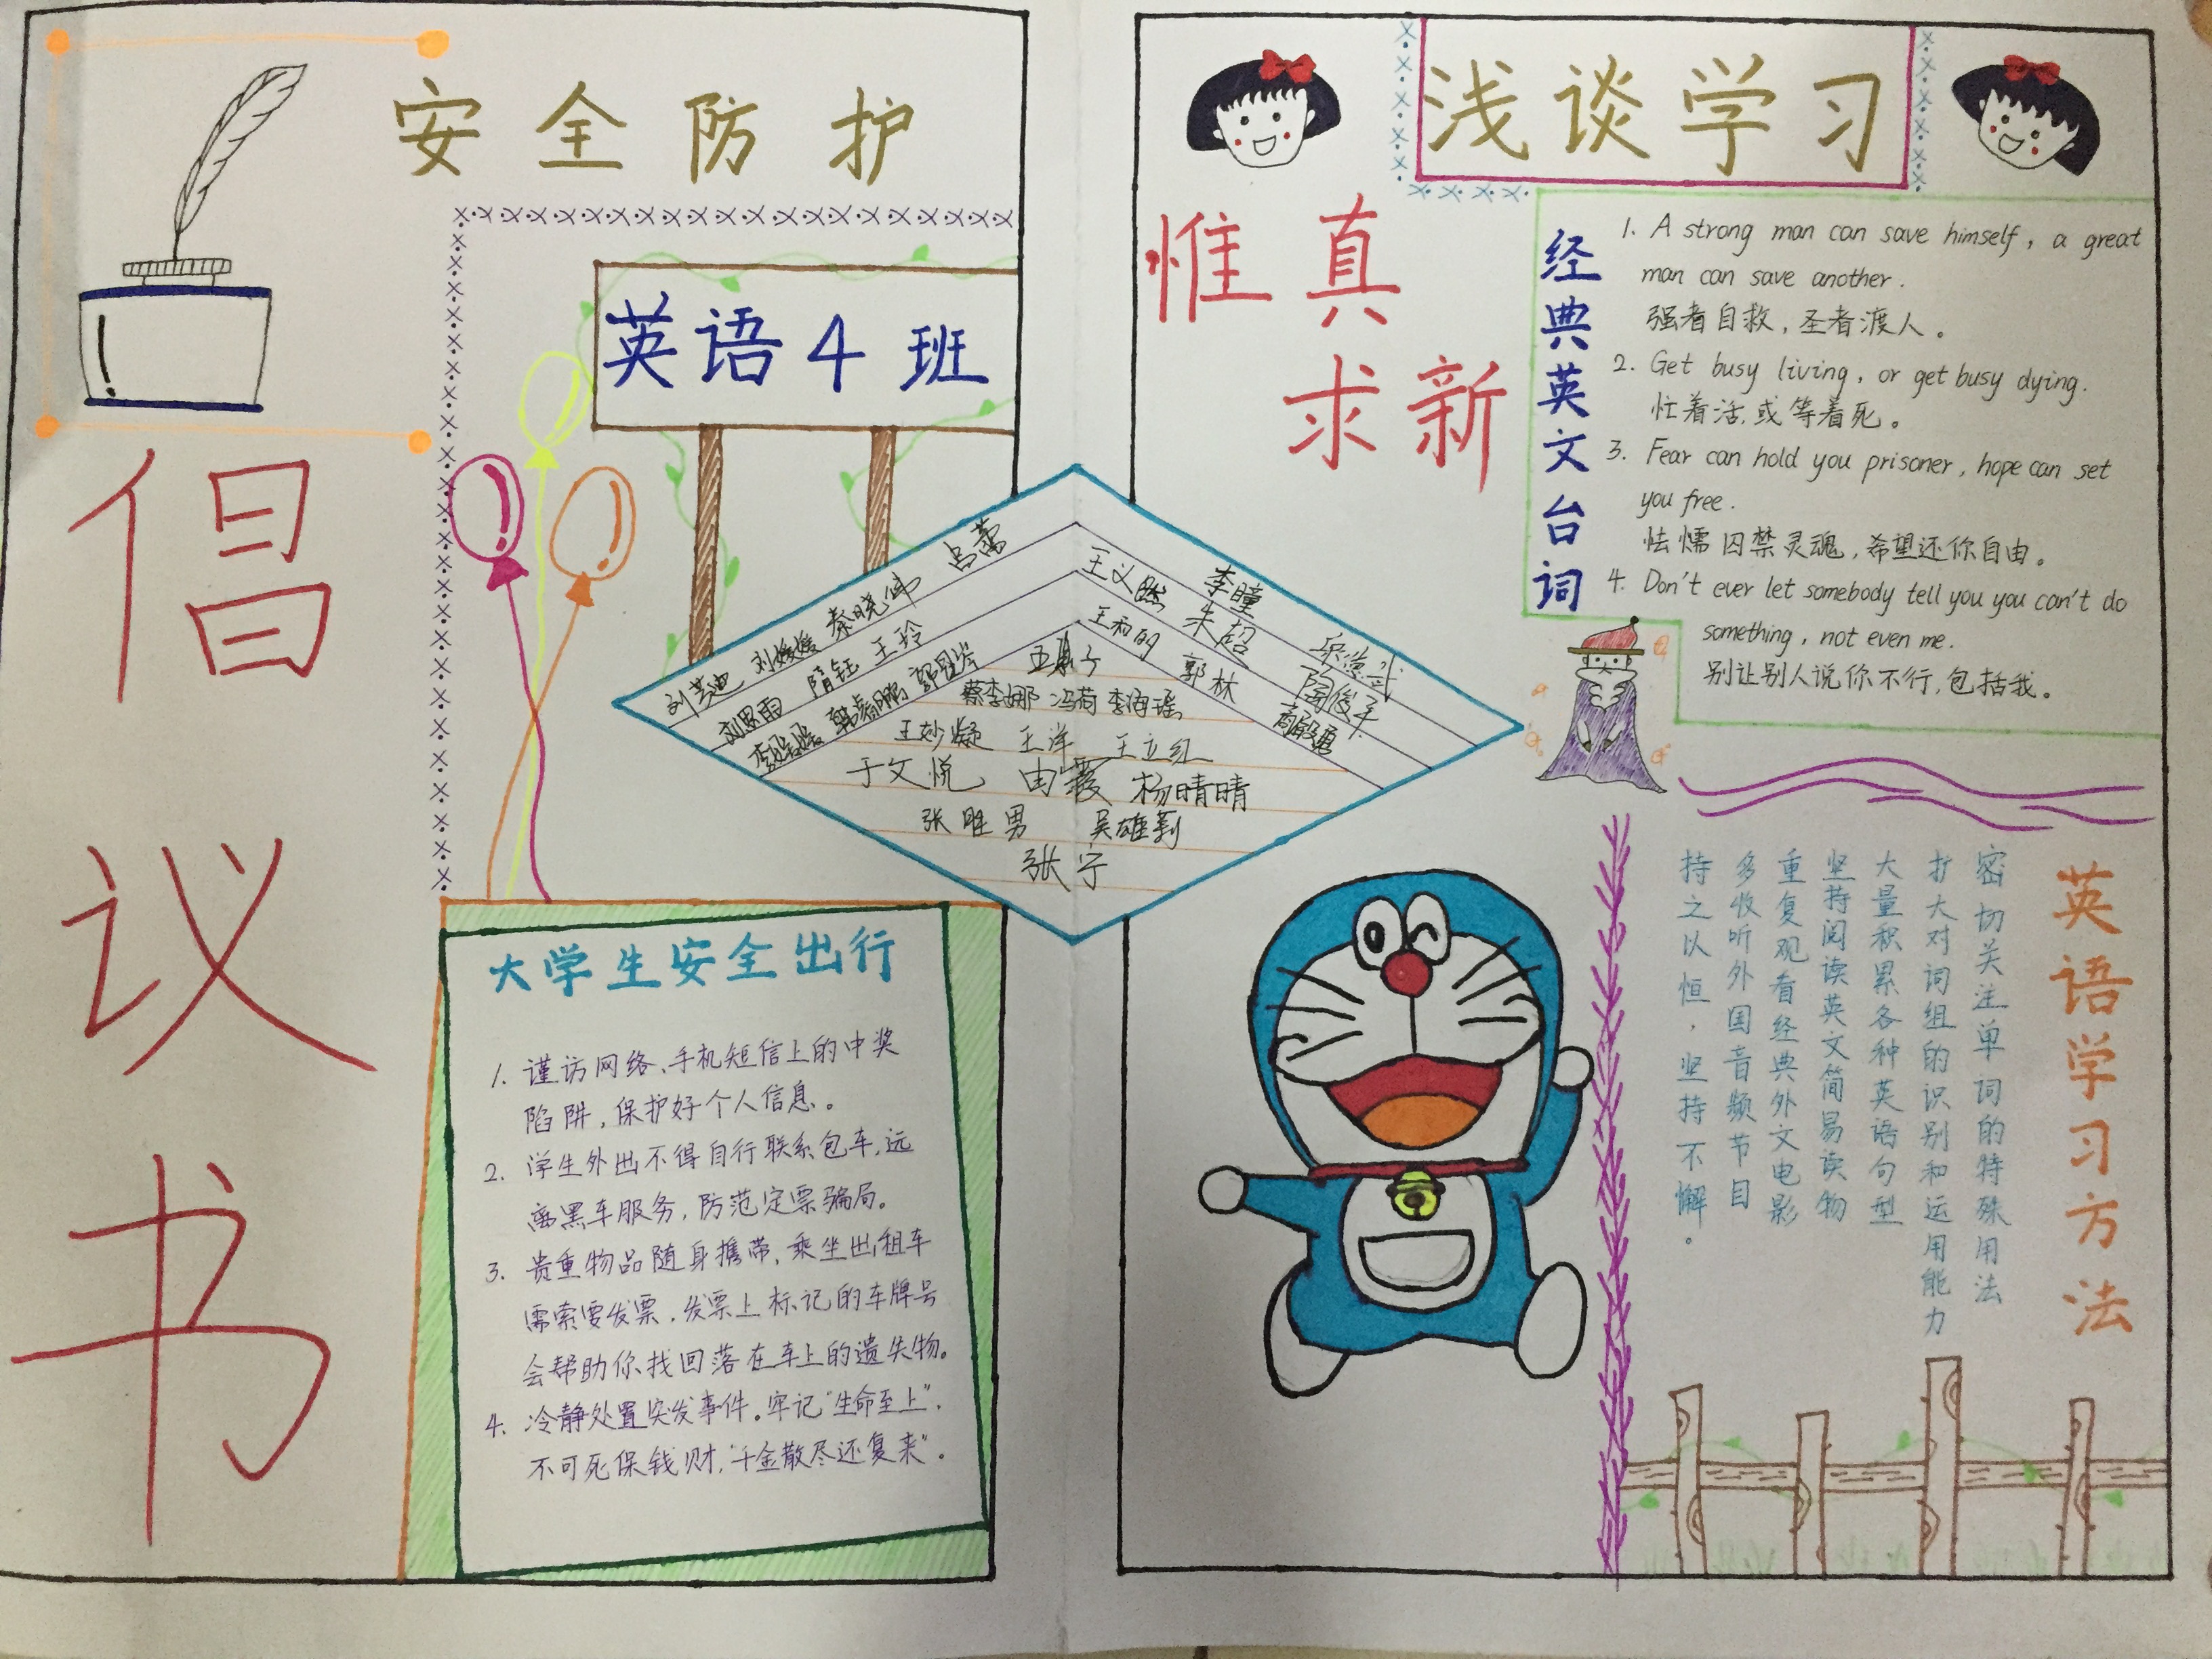 安全防护
倡议书
英语4班
大学生安全出行
1. 谨访网络、手机短信上的中奖
陷阱，保护好个人信息。
2. 学生外出不得自行联系包车，远
离黑车服务，防范定票骗局。
3. 贵重物品随身携带，乘坐出租车
需索要发票，发票上标记的车牌号
会帮助你找回落在车上的遗失物。
4. 冷静处置突发事件。牢记“生命至上”，
不可死保钱财，“千金散尽还复来”。
刘芝迪 刘媛媛 秦晓伟 吕蕾
刘思雨 隋钰 王玲
王义燃 李瞳
朱超
王和明 郭林 陶俊平
蔡李娜 冯荷 李海瑶
王妙凝 王洋 王立红
于文悦 由薇 杨晴晴
张胜男 吴雄莉
张宁
浅谈学习
惟真
求新
经典英文台词
1. A strong man can save himself, a great
man can save another.
强者自救，圣者渡人。
2. Get busy living, or get busy dying.
忙着活，或等着死。
3. Fear can hold you prisoner, hope can set
you free.
怯懦囚禁灵魂，希望还你自由。
4. Don't ever let somebody tell you you can't do
something, not even me.
别让别人说你不行，包括我。
英语学习方法
密切关注单词的特殊用法
扩大对词组的识别和运用能力
大量积累各种英语句型
坚持阅读英文简易读物
重复观看经典外文电影
多收听外国音频节目
持之以恒，坚持不懈。